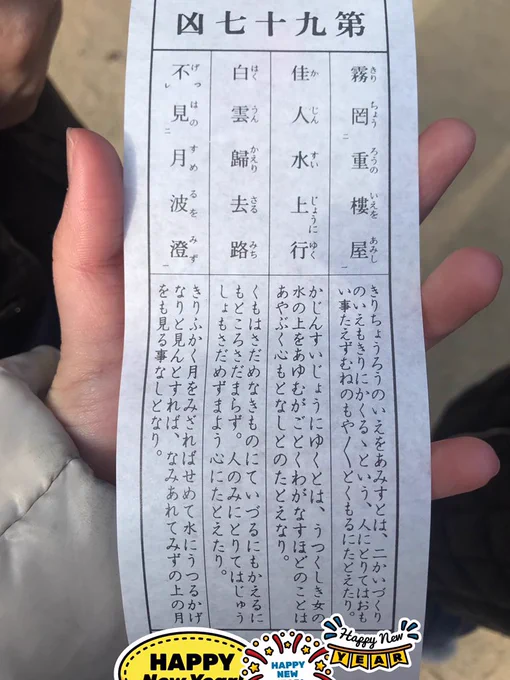 第九十七凶
霧罔重樓屋
きり ちょう ろうの いえを あみし
二 一
佳人水上行
か じん すい じょうに ゆく
白雲歸去路
はく うん かえり さる みち
不見月波澄
げつ はの すめ るを みず
レ 二 一
きりちょうろうのいえをあみすとは、二かいづくり
のいえもきりにかくるゝという、人にとりてはおも
い事たえずむねのもや〳〵とくもるにたとえたり。
かじんすいじょうにゆくとは、うつくしき女の
水の上をあゆむがごとくわがなすほどのことは
あやぶく心もとなしとのたとえなり。
くもはさだめなきものにていづるにもかえるに
もどころさだまらず。人のみにとりてはじゅう
しょもさだめずまよう心にたとえたり。
きりふかく月をみざればせめて水にうつるかげ
なりと見んとすれば、なみあれてみずの上の月
をも見る事なしとなり。
HAPPY
New Year!
HAPPY
NEW
Happy New
YEAR